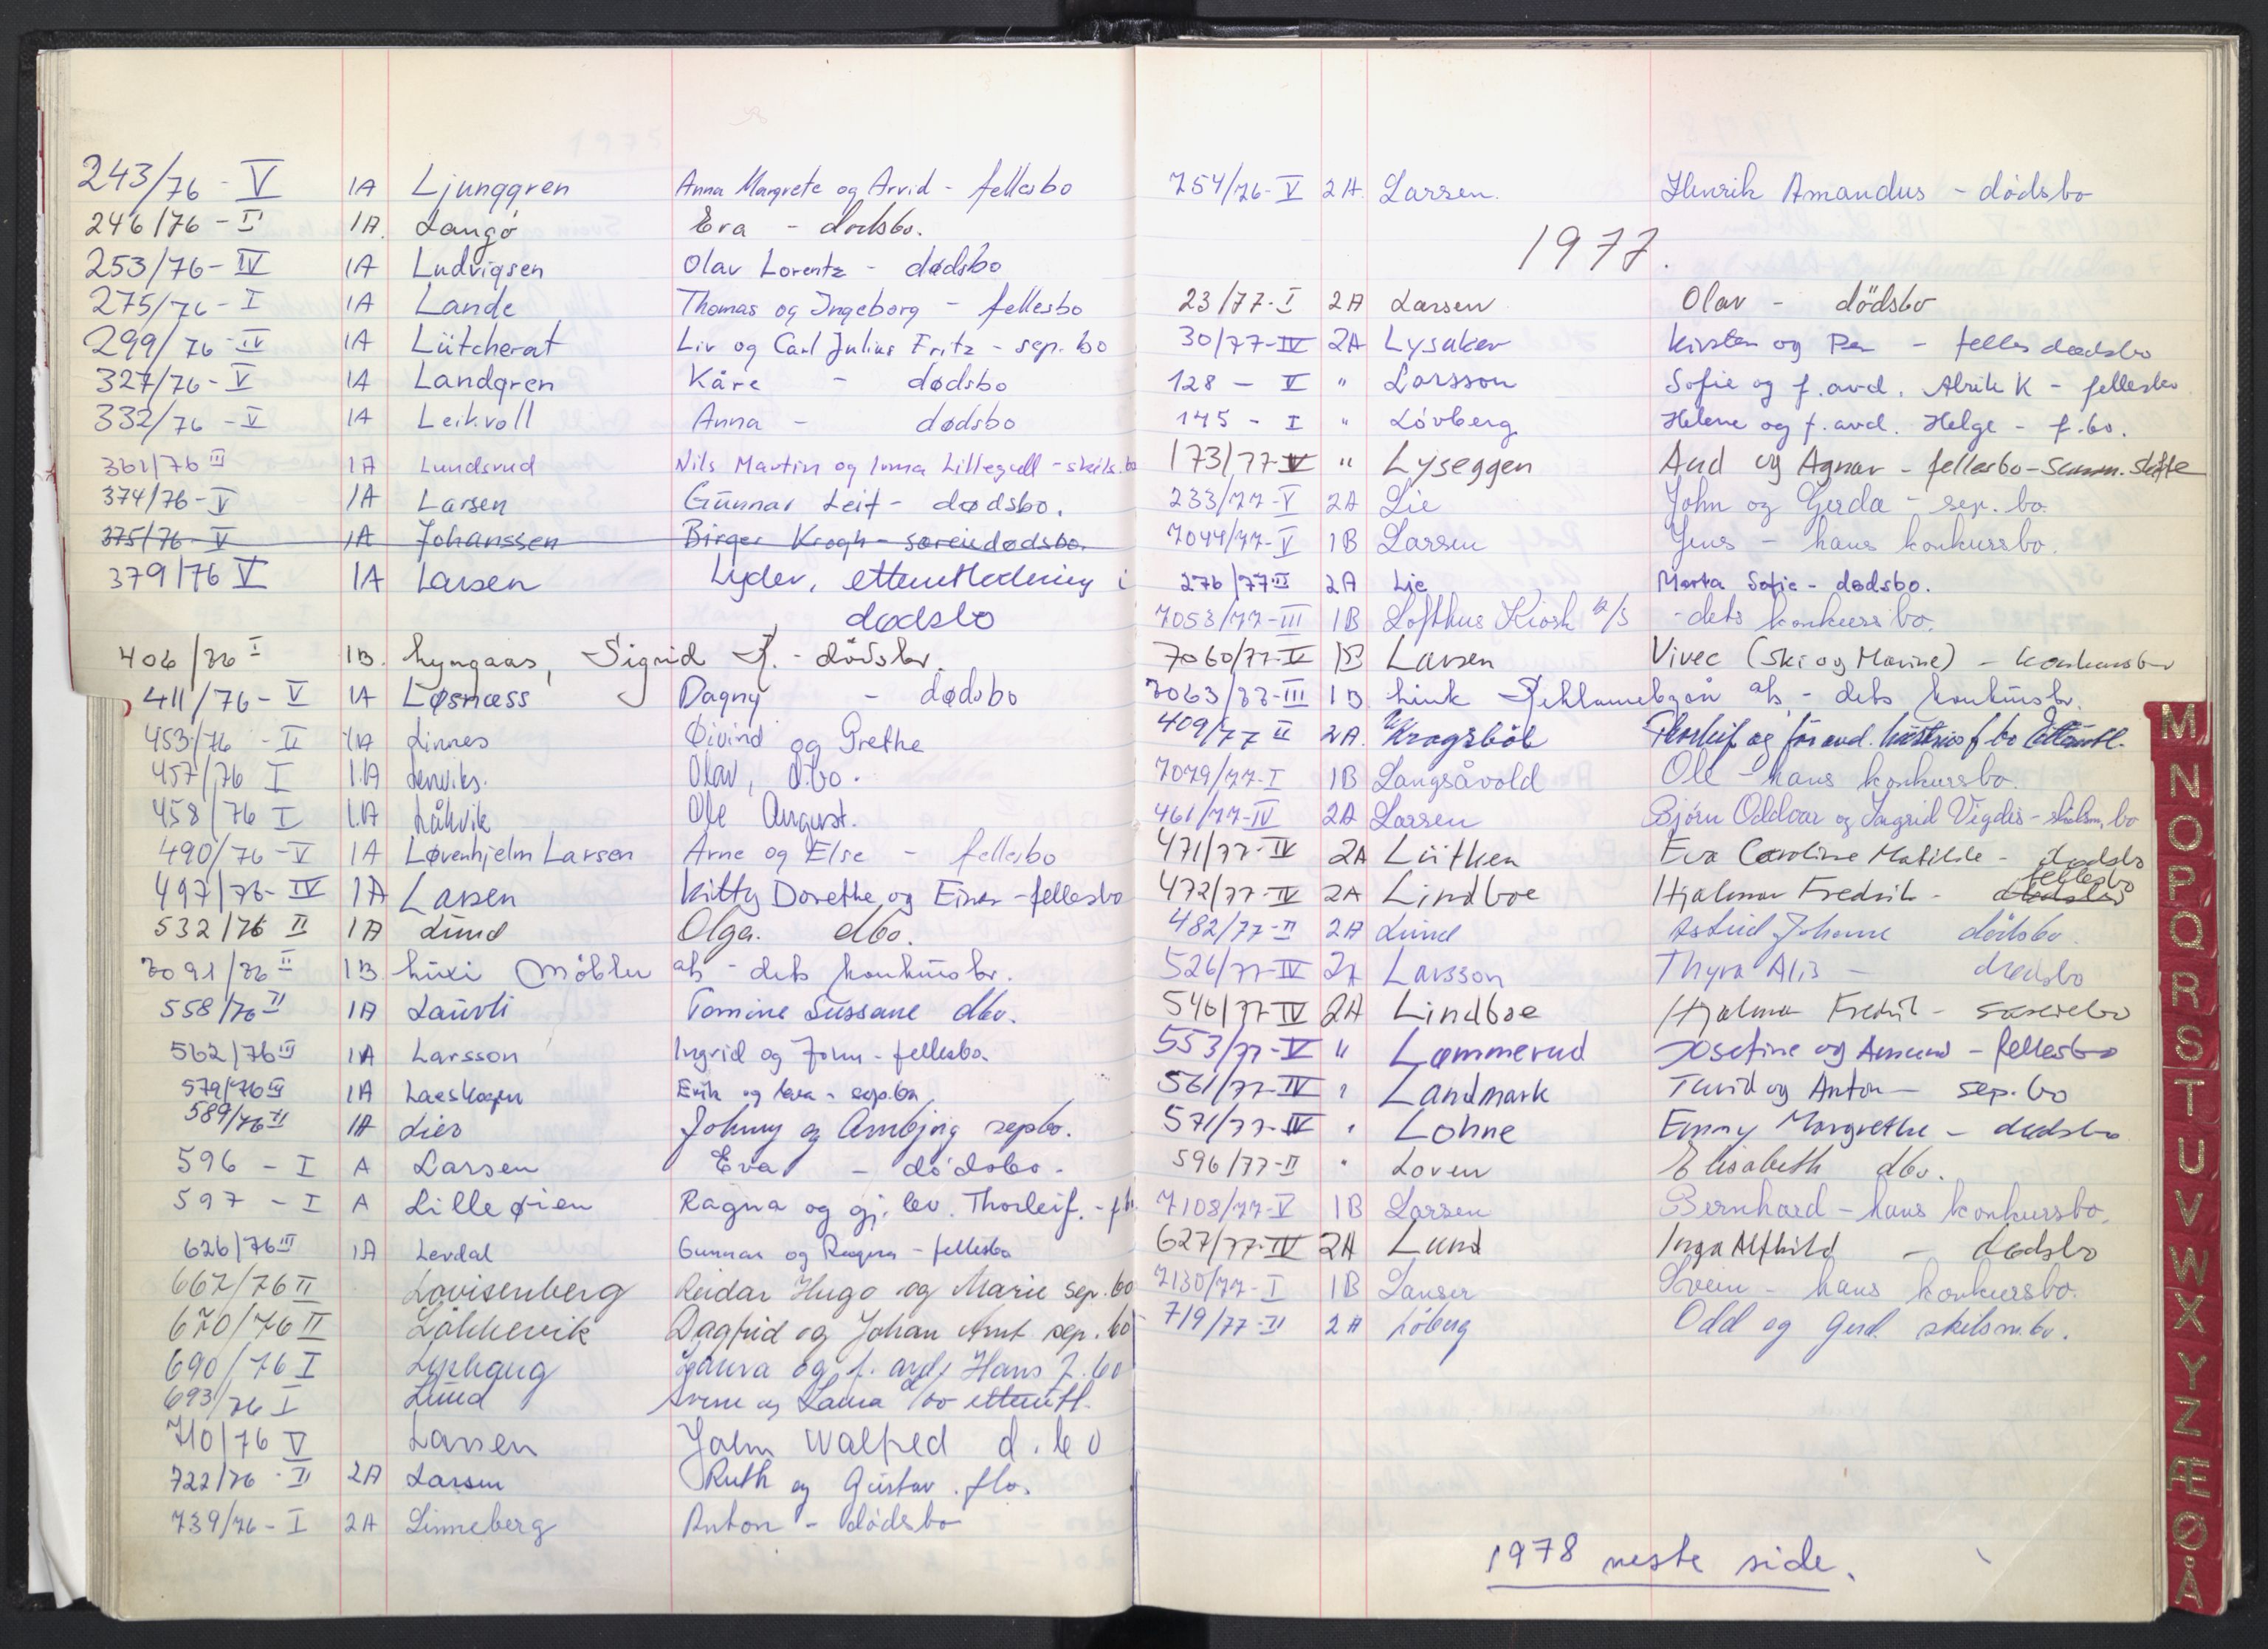 243/76 - V 1A Ljunggren Anna Margrete og Arvid - fellesbo
246/76 - II 1A. Langö Eva - dödsbo.
253/76 - IV 1A Ludvigsen Olav Lorentz - dødsbo
275/76 - I 1A Lande Thomas og Ingeborg - fellesbo
299/76 - IV 1A Lütcherat Liv og Carl Julius Fritz - sep. bo
327/76 - V 1A Landgren Kåre - dødsbo
332/76 - V 1A Leikvoll Anna - dødsbo
361/76 III 1A Lundsrud Nils Martin og Irma Lillegull - skils.bo
374/76 - V 1A Larsen Gunnar Leif - dødsbo.
375/76 - V 1A Johanssen Birger Krogh - særeiedødsbo.
379/76 V 1A Larsen Lyder, etterutlodning i
dødsbo
406/76 I 1B. Lyngaas, Sigrid K. - dödsbo.
411/76 - V 1A Løsnæss Dagny - dødsbo
453/76 - II 1A Linnes Øivind og Grethe
457/76 I 1.A Lerviks. Olav, d.bo.
458/76 I 1.A Låhvik Ole August.
490/76 - V 1A Løvenhjelm Larsen Arne og Else - fellesbo
497/76 - IV 1A Larsen Kitty Dorethe og Einar - fellesbo
532/76 II 1A Lund Olga. dbo.
7091/76 II 1B. Luxi Möbler a/s - dets konkursbo.
558/76 II 1A Laurli Tomine Sussane dbo.
562/76 III 1A Larsson Ingrid og John - fellesbo.
579/76 III 1A Laeskogen Erik og - sep.bo
589/76 II 1A Lier Johnny og Arnbjørg sepbo.
596 - I A Larsen Eva - dödsbo.
597 - I A Lilleøien Ragna og gj. lev. Thorleif. - f.b.
626/76 III 1A Levdal Gunnar og Ragna - fellesbo
667/76 II Lovisenberg Reidar Hugo og Marie sep. bo
670/76 II Låkkevik Dagfrid og Johan Arnt sep. bo
690/76 I Lyshaug Laura og f. avd. Hans f. bo
693/76 I Lund Arne og Laura bo etterutl.
710/76 V Larsen John Walfred d. bo
722/76 - II 2A Larsen Ruth og Gustav. fbo.
739/76 - I 2A Linneberg Anton - dödsbo
754/76 - V 2A. Larsen. Henrik Amandus - dödsbo
1977.
23/77 - I 2A Larsen Olav - dödsbo
30/77 - IV 2A Lysaker Kirsten og Per - felles dødsbo
128 - V " Larsson Sofie og f. avd. Alrik K - fellesbo
145 - I " Lövberg Helene og f. avd. Helge - f.bo.
173/77 - V " Lyseggen Aud og Agnar - fellesbo - samm. skifte
233/77 - V 2A Lie John og Gerda - sep. bo.
7044/77 - V 1B Larsen Jens - hans konkursbo.
276/77 III 2A Lie Marta Sofie - dødsbo.
7053/77 - III 1B Lofthus Kiosk A/S - dets konkursbo.
7060/77 - V 1B Larsen Vivec (Ski og Marine) - konkursbo
7063/77 - III 1B Link Reklamebyrå a/s - dets konkursbo.
409/77 II 2A. Kragsböl Thorleif og for avd. hustrus f bo etterutl.
7079/77 - I 1B Langsåvold Ole - hans konkursbo.
461/77 - IV 2A Larsen Bjørn Oddvar og Ingrid Vigdis - skilsm. bo
471/77 - IV 2A Lütken Eva Caroline Matilde - dødsbo
472/77 - IV 2A Lindboe Hjalmar Fredrik - dødsbo fellesbo
482/77 - II 2A Lund Astrid Johanne dödsbo.
526/77 - IV 2A Larsson Thyra Alis - dødsbo
546/77 IV 2A Lindboe Hjalmar Fredrik - særeiebo
553/77 - V " Lommerud Josefine og Amund - fellesbo
561/77 - IV " Landmark Turid og Anton - sep. bo
571/77 - IV " Lohne Emmy Margrethe - dødsbo
596/77 - II " Loven Elisabeth dbo.
7108/77 - V 1B Larsen Bernhard - hans konkursbo.
627/77 - IV 2A Lund Inga Alfhild - dødsbo
7130/77 - I 1B Lanser Svein - hans konkursbo.
719/77 - II 2A Löberg Odd og Gerd. skilsm.bo.
1978 neste side.
M
N
O
P
Q
R
S
T
U
V
W
X
Y
Z
Æ
Ø
Å